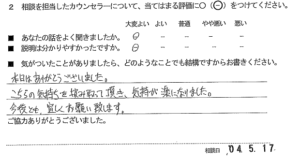 2 相談を担当したカウンセラーについて、当てはまる評価に○(⊖)をつけてください。
大変よい よい 普通 やや悪い 悪い
■ あなたの話をよく聞きましたか。 ⊖ － － － －
■ 説明は分かりやすかったですか。 ⊖ － － － －
■ 気がついたことがありましたら、どのようなことでも結構ですからお書きください。
本日はありがとうございました。
こちらの気持ちを 頂き、気持が楽になりました。
今後とも、宜しくお願い致します。
ご協力ありがとうございました。
相談日 '04.5.17